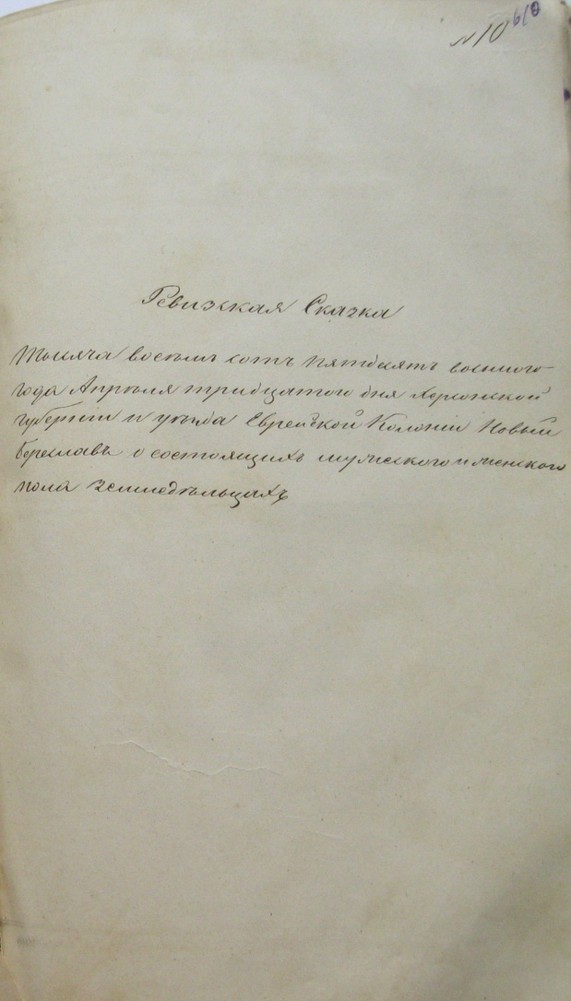 №10 610
Ревизская Сказка
Тысяча восемь сотъ пятдесятъ восьмого
года Апреля тридцатого дня Херсонской
губернии и уезда Еврейской Колонии Новый
Бериславъ о состоящихъ мужеского и женского
пола земледельцахъ